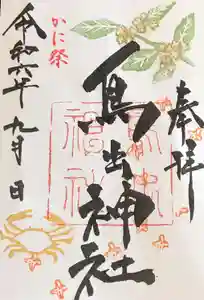 奉拝
鳥出神社
かに祭
令和六年九月 日